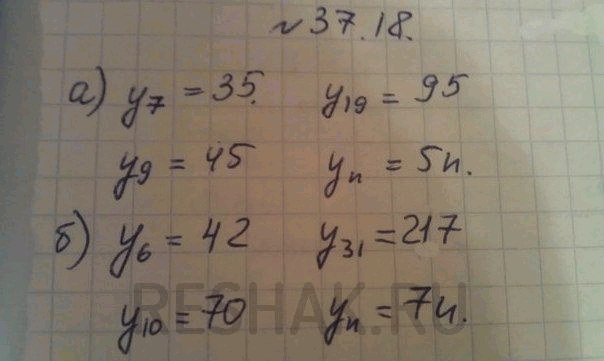 №37.18.
а) y₇ = 35. y₁₉ = 95
y₉ = 45 yₙ = 5n.
б) y₆ = 42 y₃₁ = 217
y₁₀ = 70 yₙ = 7n.
RESHAK.RU